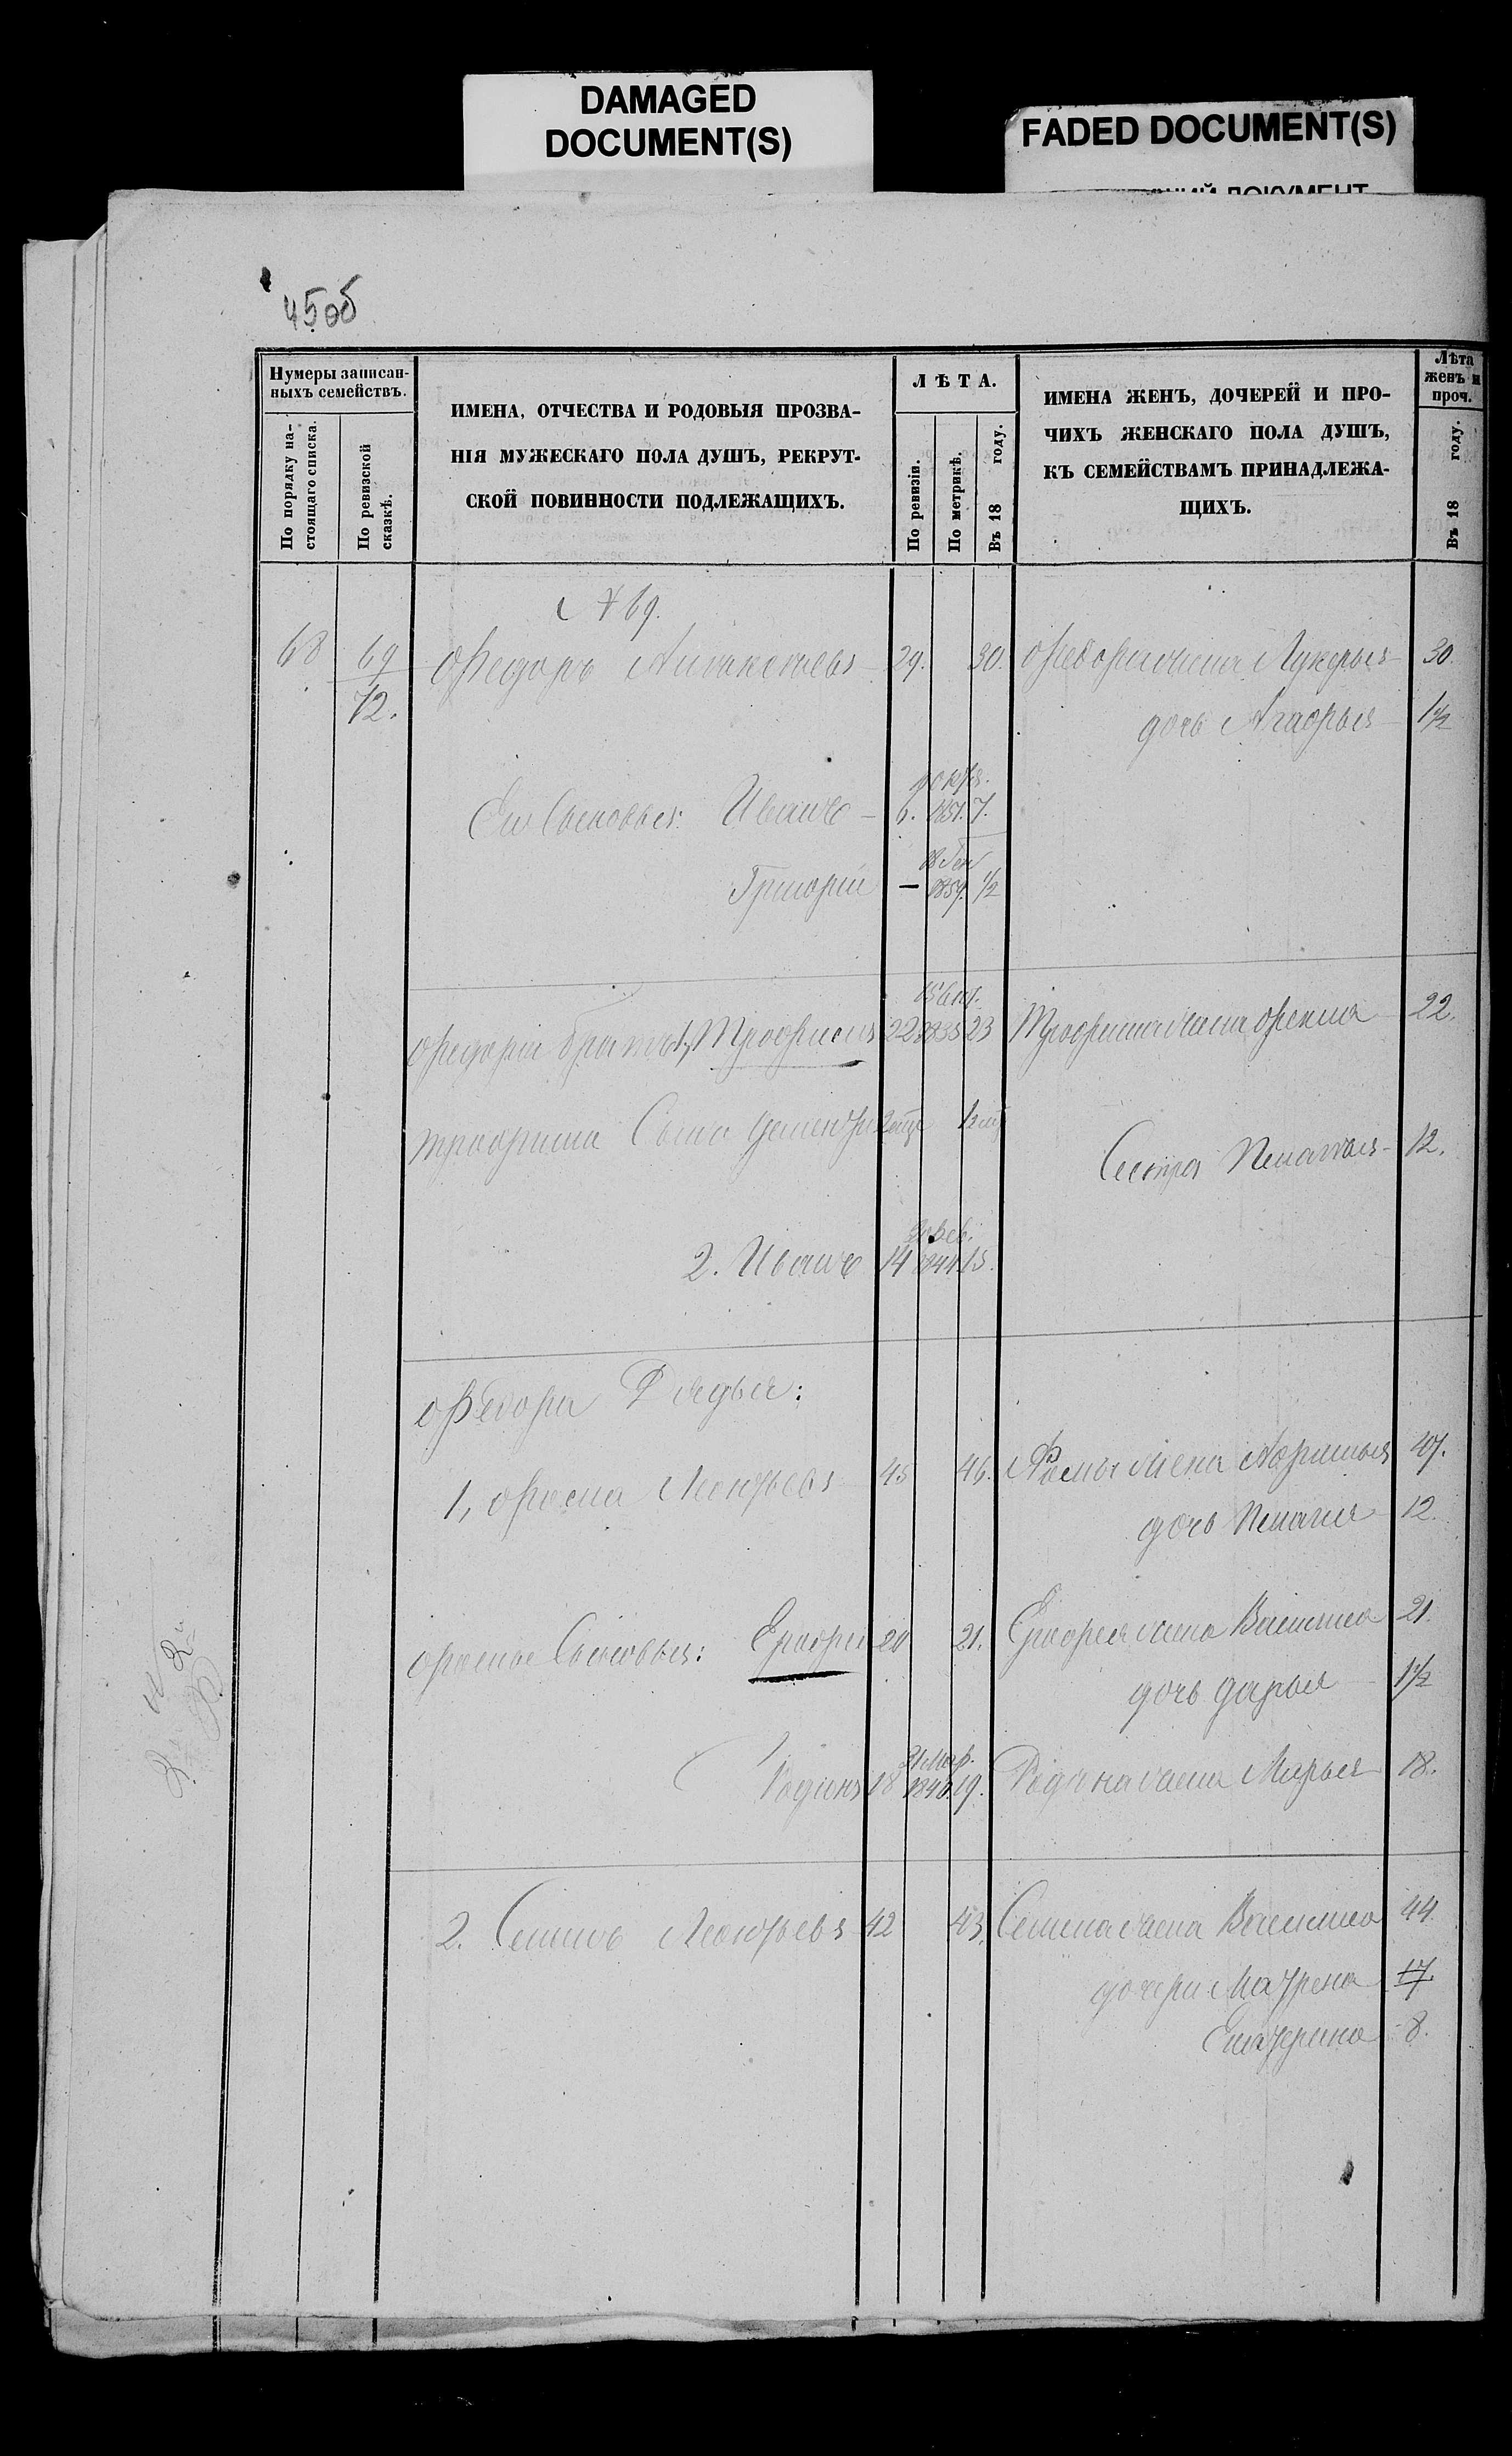 DAMAGED
DOCUMENT(S)
FADED DOCUMENT(S)
ДОКУМЕНТ
45об
Нумеры записан-
ныхъ семействъ.
По порядку на-
стоящаго списка.
По ревизской
сказкѣ.
ИМЕНА, ОТЧЕСТВА И РОДОВЫЯ ПРОЗВА-
НІЯ МУЖЕСКАГО ПОЛА ДУШЪ, РЕКРУТ-
СКОЙ ПОВИННОСТИ ПОДЛЕЖАЩИХЪ.
ЛѢТА.
По ревизіи.
По метрикѣ.
Въ 18 году.
ИМЕНА ЖЕНЪ, ДОЧЕРЕЙ И ПРО-
ЧИХЪ ЖЕНСКАГО ПОЛА ДУШЪ,
КЪ СЕМЕЙСТВАМЪ ПРИНАДЛЕЖА-
ЩИХЪ.
Лѣта
женъ и
проч.
Въ 18 году.
№ 69.
68 69 Федоръ 29. 30. Федора жена Лукерья 30.
72. дочь Агафья 1½
Его Сыновья: Иванъ 6. 1851. 7.
Григорій — 1859. ½
Федора братья 1, Трофимъ 22 1835 23 Трофима жена 22.
Трофима Сынъ
Сестра Пелагея 12.
2. Иванъ 14 1844 15.
Федора Дядья:
1, Фома Леонтьевъ 45 46. Фомы жена 47.
дочь Пелагея 12.
Фомы Сыновья: Ерофей 20 21. Ерофея жена Василиса 21.
дочь Дарья 1½
21 Мар.
Родіонъ 18 1840 19. Родіона жена Марья 18.
2. Семенъ Леонтьевъ 42 43. Семена жена Василиса 44.
дочери Матрена 17.
Екатерина 8.